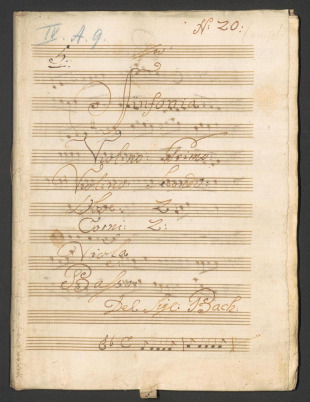 IV. A. 9. N: 20:
5.
Sinfonia
Violino Primo
Violino Secondo
Oboe 2
Corni: 2:
Viola
Basso
Del Sigl: Bach